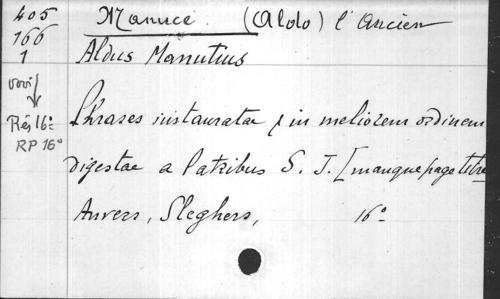 405 Manuce (Aldo) l'Ancien
166
1 Aldus Manutius
voir
Rés 16° Phrases instauratae & in meliorem ordinem
RP 16°
digestae a Patribus S. J. [manque page titre
Anvers, Sleghers, 16°